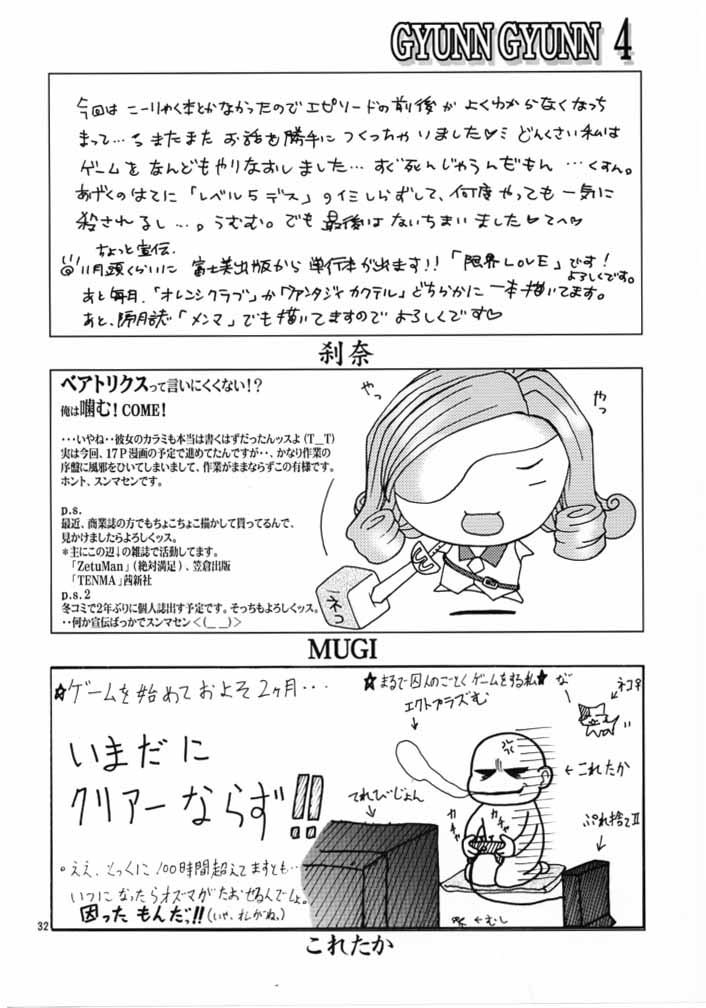 GYUNN GYUNN 4
今回は こーりゃく本とかなかったのでエピソードの前後が よくわからなくなっち
まって…。またまた お話を勝手に つくっちゃいました♡ミ どんくさい私は
ゲームを なんどもやりなおしました… すぐ死んじゃうんだもん …くすん。
あげくのはてに「レベル5デス」のイミしらずして、何度やっても一気に
殺されるし…。うむむ。でも 最後は ないちまいました♡てへ♡
ちょっと宣伝.
11月頭くらいに 富士美出版から 単行本が出ます!!「限界LOVE」です!
よろしくです。
あと毎月.「オレンジクラブ」か「ファンタジィカクテル」どちらかに 一本描いてます。
あと、隔月誌「メンマ」でも描いてますので よろしくです♡
刹奈
ベアトリクスって言いにくくない!?
俺は噛む! COME!
・・・いやね・・彼女のカラミも本当は書くはずだったんッスよ(T_T)
実は今回、17P漫画の予定で進めてたんですが・・、かなり作業の
序盤に風邪をひいてしまいまして、作業がままならずこの有様です。
ホント、スンマセンです。
p.s.
最近、商業誌の方でもちょこちょこ描かして買ってるんで、
見かけましたらよろしくッス。
*主にこの辺↓の雑誌で活動してます。
「ZetuMan」(絶対満足)、笠倉出版
「TENMA」茜新社
p.s.2
冬コミで2年ぶりに個人誌出す予定です。そっちもよろしくッス。
・・何か宣伝ばっかでスンマセン<(_ _)>
やっ
やっ
ネコ
MUGI
☆ゲームを始めておよそ2ヶ月・・・
いまだに
クリアーならず!!
。ええ、とっくに100時間超えてますとも…
いつになったらオズマがたおせるんでしょ。
困ったもんだっ!!(いや、オレがね。)
★まるで囚人のごとくゲームをする私★
エクトプラズむ
な~
ネコ♀
←これたか
てれびじょん
カチャ
カチャ
ぷれ捨てII
←むし
32
これたか